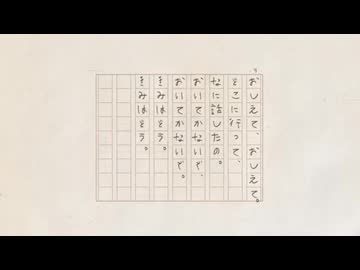 5
おしえて、おしえて。
どこに行って、
なに話したの。
おいてかないで、
おいてかないで。
きみはどう。
きみはどう。